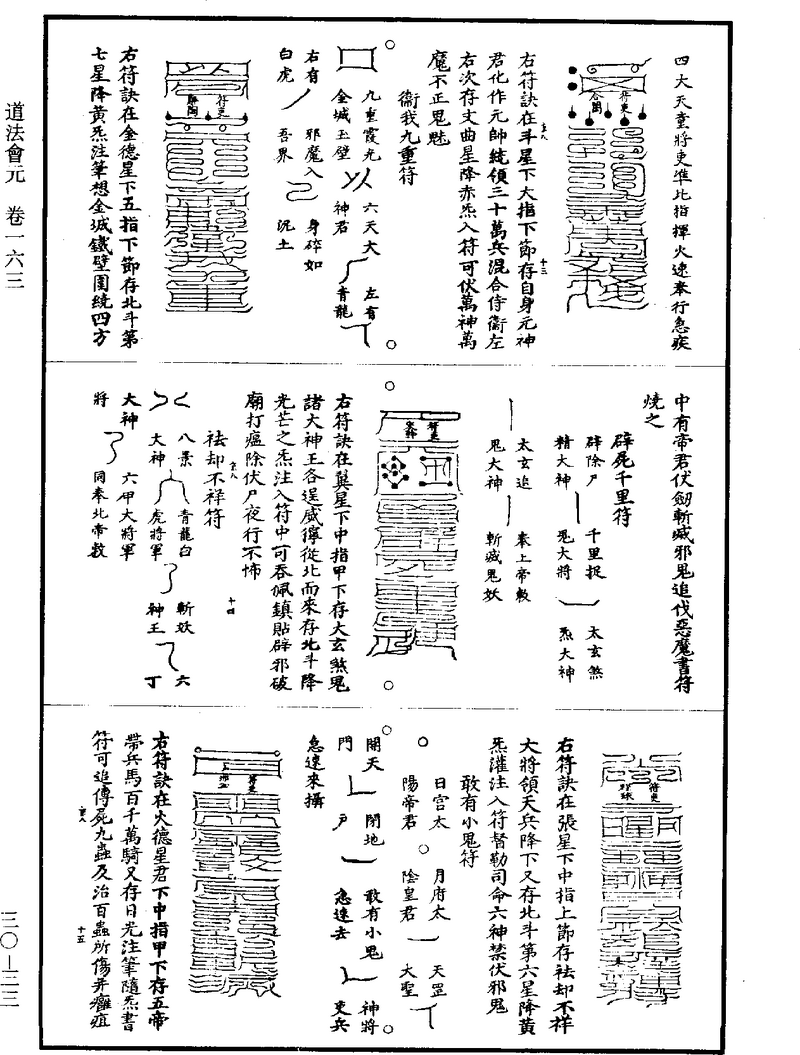 道法會元　卷一六三
四大天童將吏準此指揮火速奉行急疾
符吏
右符訣在斗星下大指下節存自身元神
君化作元帥統領三十萬兵混合侍衛左
右次存文曲星降赤炁入符可伏萬神萬
魔不正鬼魅
衛我九重符
九重霞光
金城玉壁
六天大
神君
左有
青龍
右有
白虎
邪魔入
吾界
身碎如
沉土
符吏
右符訣在金德星下五指下節存北斗第
七星降黃炁注筆想金城鐵壁圍繞四方
中有帝君伏劒斬滅邪鬼追伐惡魔書符
燒之
辟屍千里符
辟除尸
精大神
千里捉
鬼大將
太玄煞
炁大神
太玄追
鬼大神
奉上帝敕
斬滅鬼妖
符吏
右符訣在翼星下中指甲下存大玄煞鬼
諸大神王各逞威獰從北而來存北斗降
光芒之炁注入符中可吞佩鎮貼辟邪破
廟打瘟除伏尸夜行不怖
祛却不祥符
八景
大神
青龍白
虎將軍
斬妖
神王
六
丁
大神
將
六甲大將軍
同奉北帝敕
符吏
右符訣在張星下中指上節存祛却不祥
大將領天兵降下又存北斗第六星降黃
炁灌注入符督勒司命六神禁伏邪鬼
敢有小鬼符
日宮太
陽帝君
月府太
陰皇君
天罡
大聖
開天
門
閉地
戶
敢有小鬼
急速去
神將
吏兵
急速來攝
符吏
右符訣在火德星君下中指甲下存五帝
帶兵馬百千萬騎又存日光注筆隨炁書
符可追傳屍九蟲及治百蟲所傷并癰疽
十三
十四
十五
三〇—三三